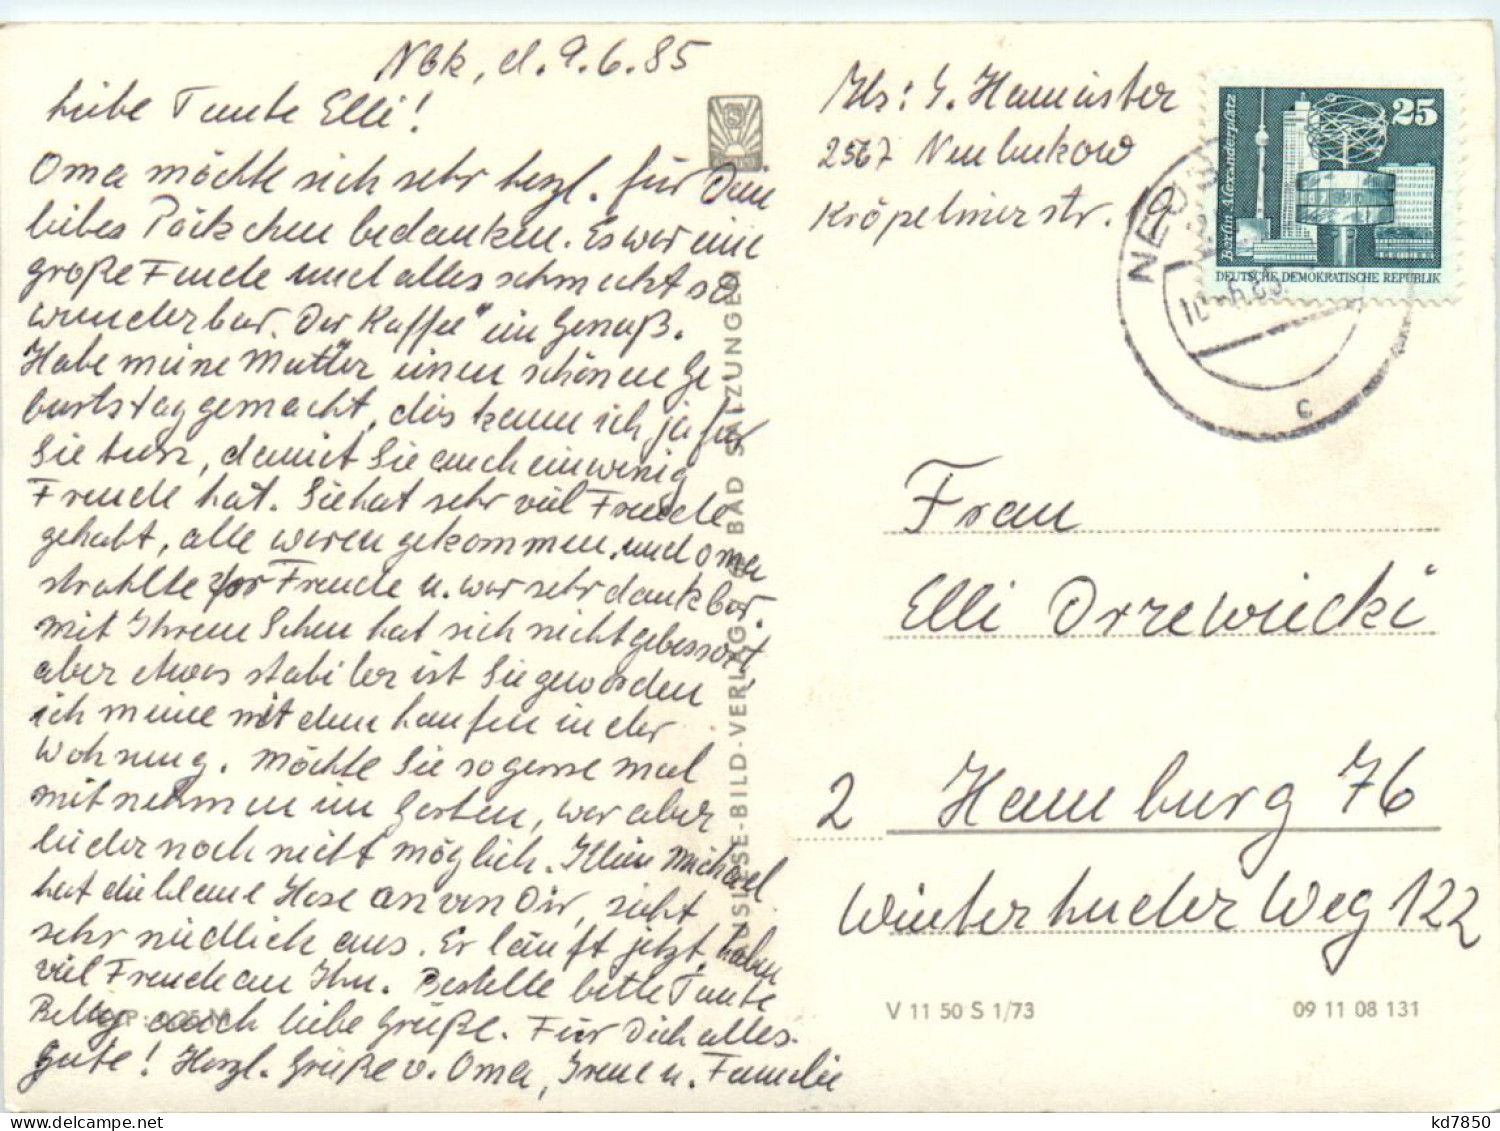 Nbk, d. 9.6.85
Liebe Tante Elli!
Oma möchte sich sehr herzl. für Dein
liebes Päckchen bedanken. Es war eine
große Freude und alles schmeckt so
wunderbar. Der Kaffee ein Genuß.
Habe meine Mutter einen schönen Ge-
burtstag gemacht, dis kann ich ja für
Sie tun, damit Sie auch ein wenig
Freude hat. Sie hat sehr viel Freude
gehabt, alle waren gekommen, und Oma
strahlte vor Freude u. war sehr dankbar.
Mit Ihrem Sehen hat sich nicht gebessert,
aber etwas stabiler ist Sie geworden
ich meine mit dem Laufen in der
Wohnung. Möchte Sie so gerne mal
mitnehmen im Garten, war aber
leider noch nicht möglich. Klein Michael
hat die blaue Hose an von Dir, sieht
sehr niedlich aus. Er läuft jetzt, haben
viel Freude an Ihn. Bestelle bitte Tante
Betty auch liebe Grüße. Für Dich alles
gute! Herzl. Grüße v. Oma, Irene u. Familie
BILD-VERLAG BAD SALZUNGEN
Abs: I. Hameister
2567 Neubukow
Kröpelinerstr. 9
Berlin-Alexanderplatz
25
DEUTSCHE DEMOKRATISCHE REPUBLIK
10.-6.85
c
Frau
Elli Orzewiecki
2 Hamburg 76
Winterhuder Weg 122
V 11 50 S 1/73
09 11 08 131
kd7850